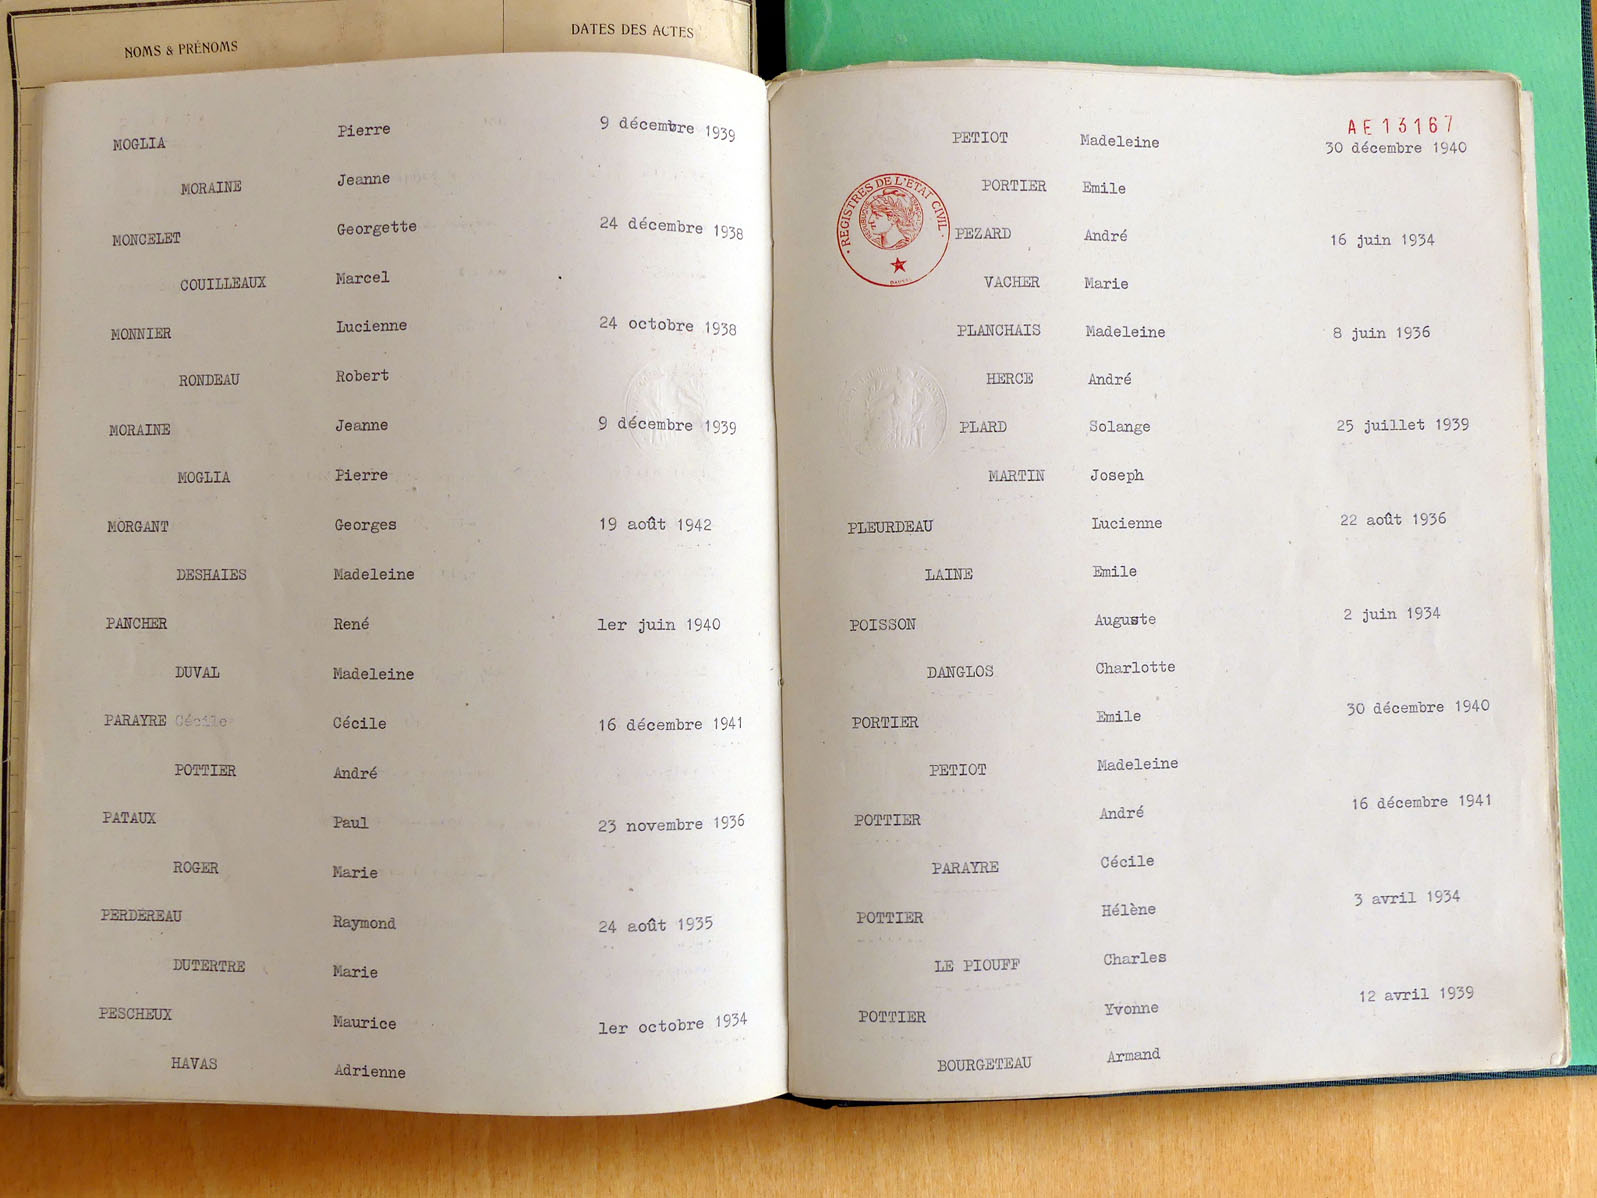 NOMS & PRÉNOMS DATES DES ACTES
MOGLIA Pierre 9 décembre 1939
MORAINE Jeanne
MONCELET Georgette 24 décembre 1938
COUILLEAUX Marcel
MONNIER Lucienne 24 octobre 1938
RONDEAU Robert
MORAINE Jeanne 9 décembre 1939
MOGLIA Pierre
MORGANT Georges 19 août 1942
DESHAIES Madeleine
PANCHER René 1er juin 1940
DUVAL Madeleine
PARAYRE Cécile Cécile 16 décembre 1941
POTTIER André
PATAUX Paul 23 novembre 1936
ROGER Marie
PERDEREAU Raymond 24 août 1935
DUTERTRE Marie
PESCHEUX Maurice 1er octobre 1934
HAVAS Adrienne
AE13167
PETIOT Madeleine 30 décembre 1940
PORTIER Emile
REGISTRES DE L'ÉTAT CIVIL
PEZARD André 16 juin 1934
VACHER Marie
PLANCHAIS Madeleine 8 juin 1936
HERCE André
PLARD Solange 25 juillet 1939
MARTIN Joseph
PLEURDEAU Lucienne 22 août 1936
LAINE Emile
POISSON Auguste 2 juin 1934
DANGLOS Charlotte
PORTIER Emile 30 décembre 1940
PETIOT Madeleine
POTTIER André 16 décembre 1941
PARAYRE Cécile
POTTIER Hélène 3 avril 1934
LE PIOUFF Charles
POTTIER Yvonne 12 avril 1939
BOURGETEAU Armand